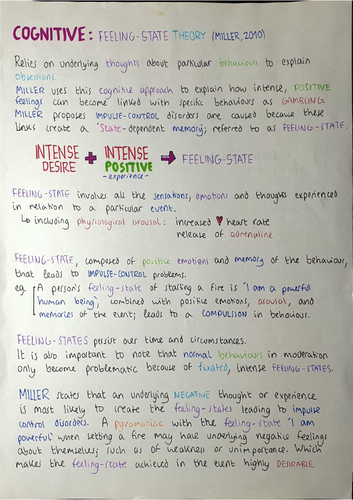 COGNITIVE: FEELING-STATE THEORY (MILLER, 2010)
Relies on underlying thoughts about particular behaviours to explain
obsessions.
MILLER uses this cognitive approach to explain how intense, POSITIVE
feelings can become linked with specific behaviours as GAMBLING.
MILLER proposes IMPULSE-CONTROL disorders are caused because these
links create a 'State-dependent memory; referred to as FEELING-STATE.
INTENSE DESIRE + INTENSE POSITIVE -experience- → FEELING-STATE
FEELING-STATE involves all the sensations, emotions and thoughts experienced
in relation to a particular event.
↳ including physiological arousal: increased ♥ heart rate
release of adrenaline
FEELING-STATE, composed of positive emotions and memory of the behaviour,
that leads to IMPULSE-CONTROL problems.
eg. A person's feeling-state of starting a fire is 'I am a powerful
human being', combined with positive emotions, arousal, and
memories of the event; leads to a COMPULSION in behaviour.
FEELING-STATES persist over time and circumstances.
It is also important to note that normal behaviours in moderation
only become problematic because of fixated, intense FEELING-STATES.
MILLER states that an underlying NEGATIVE thought or experience
is most likely to create the feeling-states leading to impulse
control disorders. A pyromaniac with the feeling-state 'I am
powerful' when setting a fire may have underlying negative feelings
about themselves; such as of weakness or unimportance. Which
makes the feeling-state achieved in the event highly DESIRABLE.